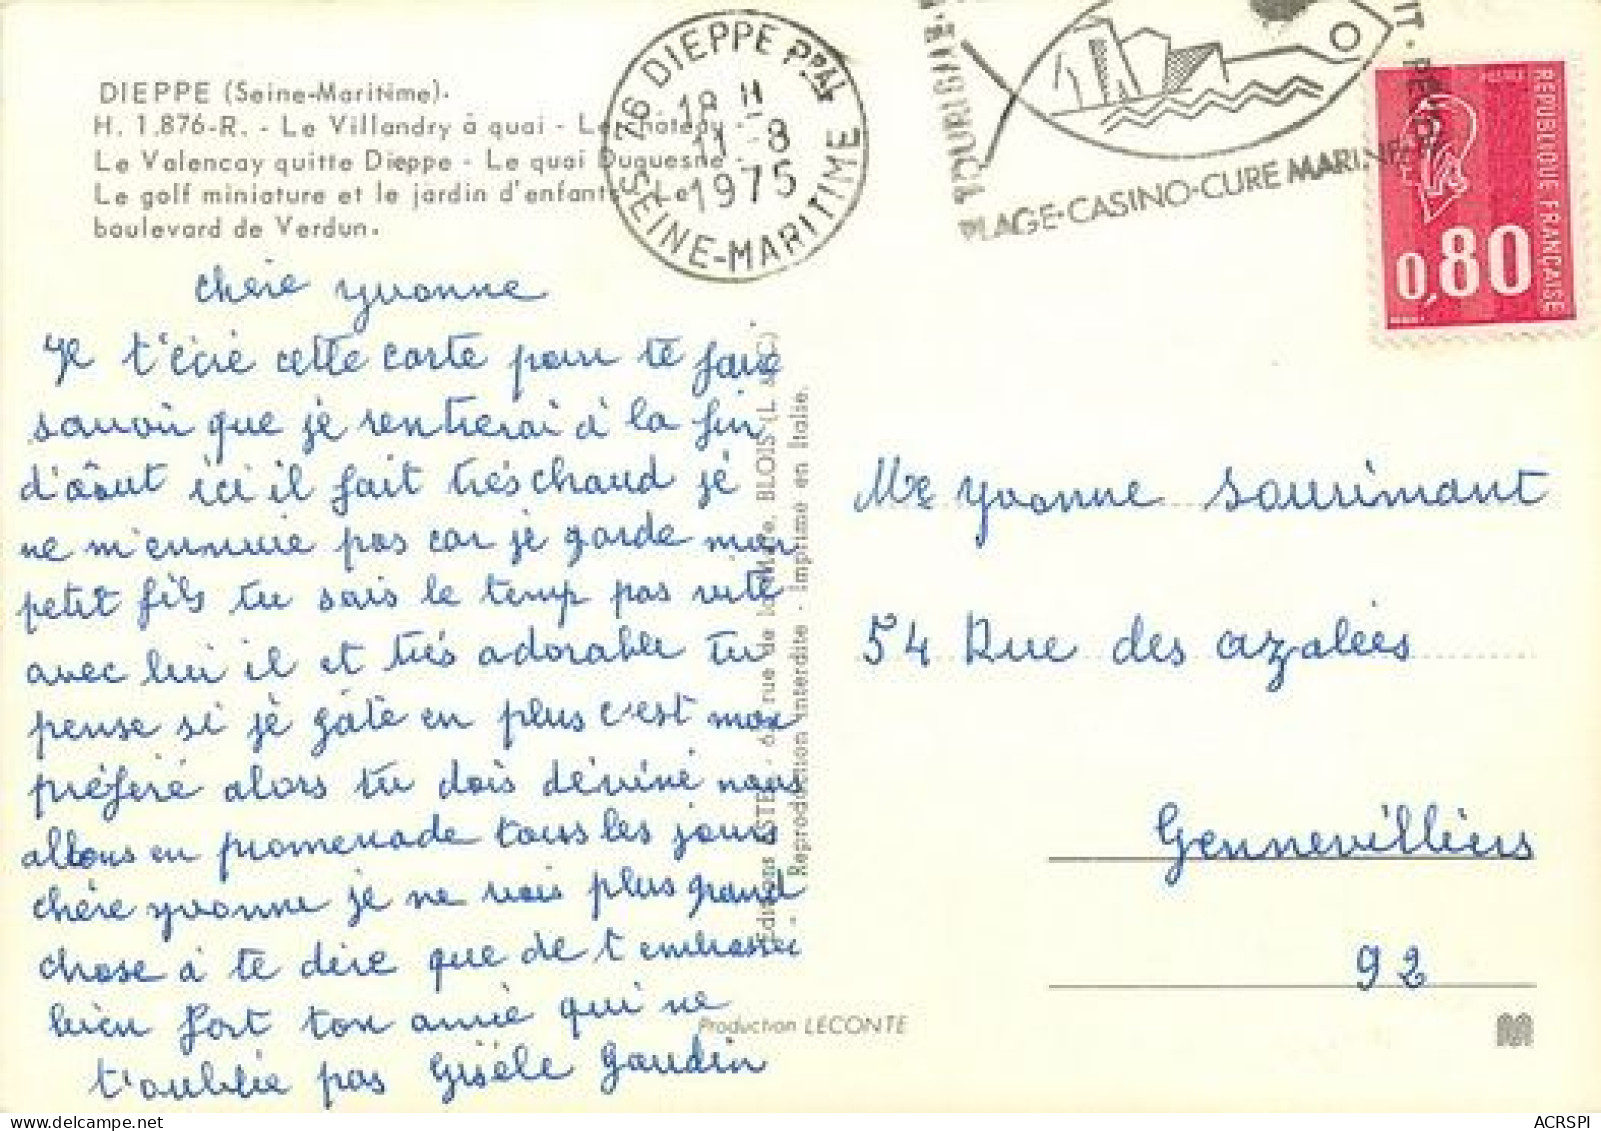 DIEPPE (Seine-Maritime).
H. 1.876-R. - Le Villandry à quai - Le Château -
Le Valencay quitte Dieppe - Le quai Duquesne -
Le golf miniature et le jardin d'enfants - Le
boulevard de Verdun.
76 DIEPPE PPAL
18 H
11-8
1975
SEINE-MARITIME
PLAGE·CASINO·CURE MARINE
REPUBLIQUE FRANÇAISE
0,80
chère yvonne
Je t'écrie cette carte pour te faire
savoir que jé rentrerai à la fin
d'aôut ici il fait trés chaud jé
ne m'ennuie pas car je garde mon
petit fils tu sais le temp pas vite
avec lui il et trés adorable tu
pense si jé gâte en plus c'est mon
préféré alors tu dois déviné nous
allons en promenade tous les jours
chére yvonne je ne vois plus grand
chose à te dire que de t embrassee
bien fort ton amie qui ne
t'oublie pas Gisèle Gaudin
Editions ESTEL - 6, rue de la Mare, BLOIS (L & C)
- Reproduction interdite - Imprimé en Italie.
Production LECONTE
Me yvonne sourimant
54 Rue des azalées
Gennevilliers
92
M
ACRSPI